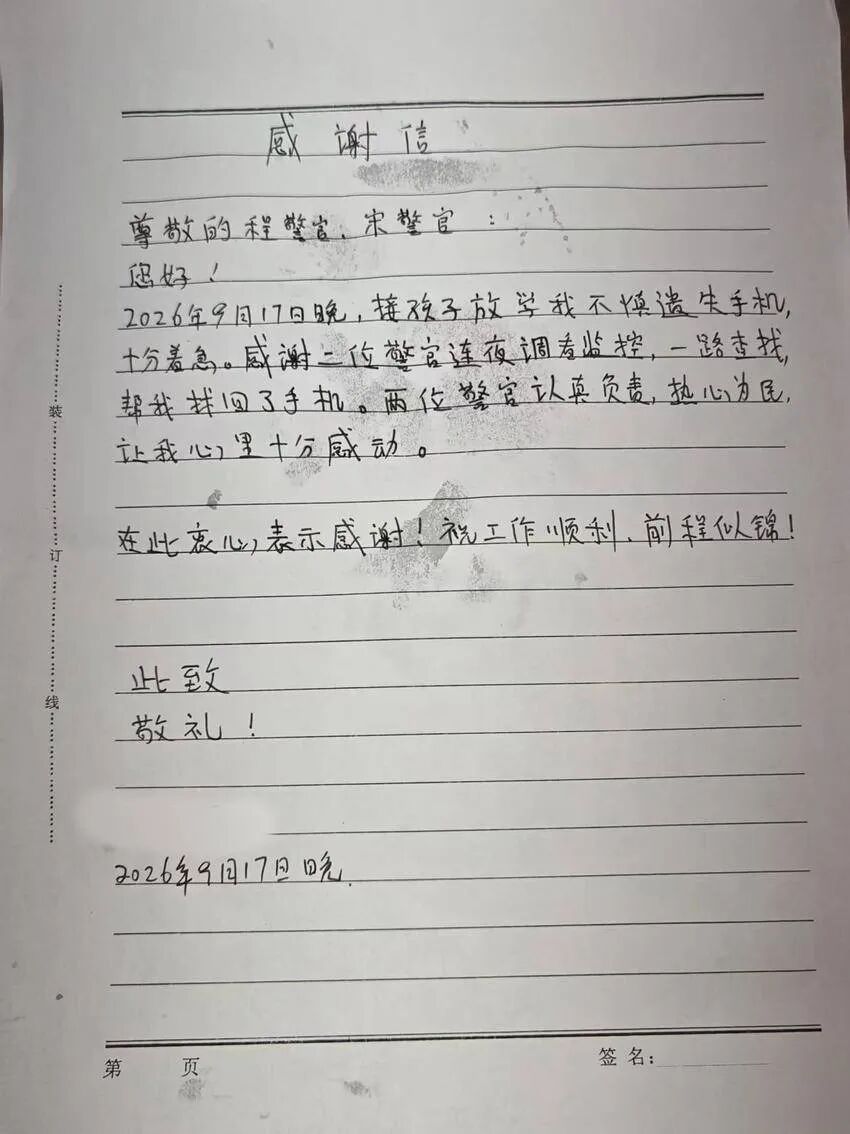 感谢信
尊敬的程警官、宋警官：
您好！
2026年9月17日晚，接孩子放学我不慎遗失手机，
十分着急。感谢二位警官连夜调看监控，一路查找，
帮我找回了手机。两位警官认真负责，热心为民，
让我心里十分感动。
在此衷心表示感谢！祝工作顺利、前程似锦！
此致
敬礼！
2026年9月17日晚.
装
订
线
第 页
签名：